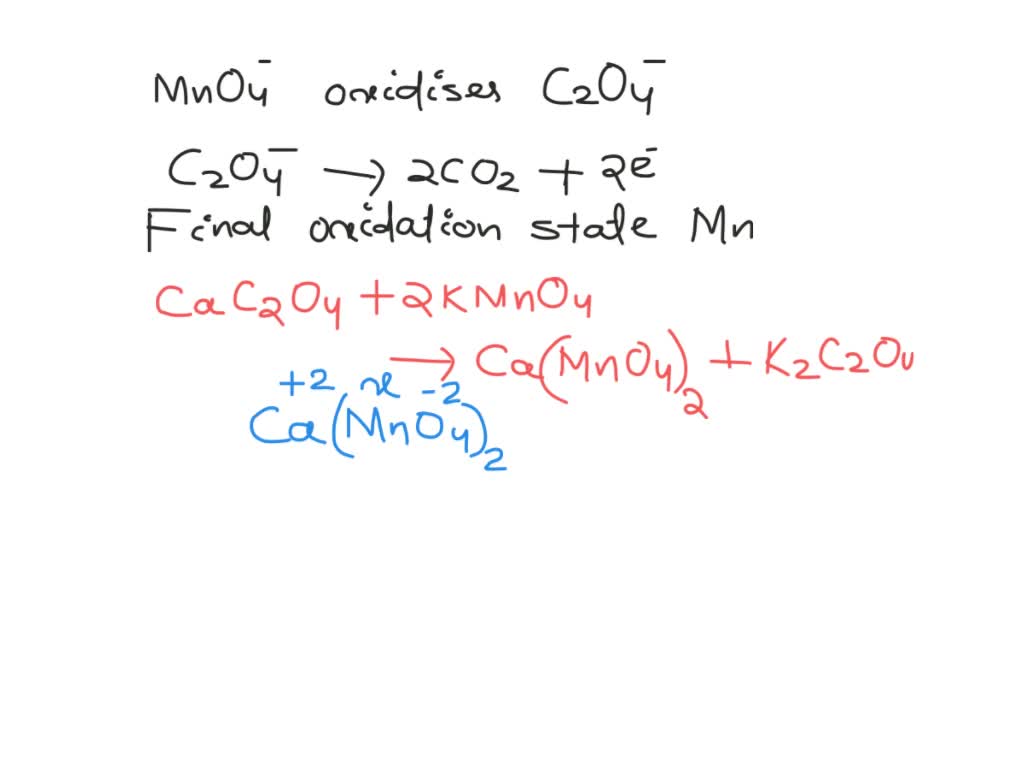 MnO₄⁻ oxidises C₂O₄⁻
C₂O₄⁻ → 2CO₂ + 2e⁻
Final oxidation state Mn
CaC₂O₄ + 2KMnO₄
→ Ca(MnO₄)₂ + K₂C₂O₄
+2 x -2
Ca(MnO₄)₂